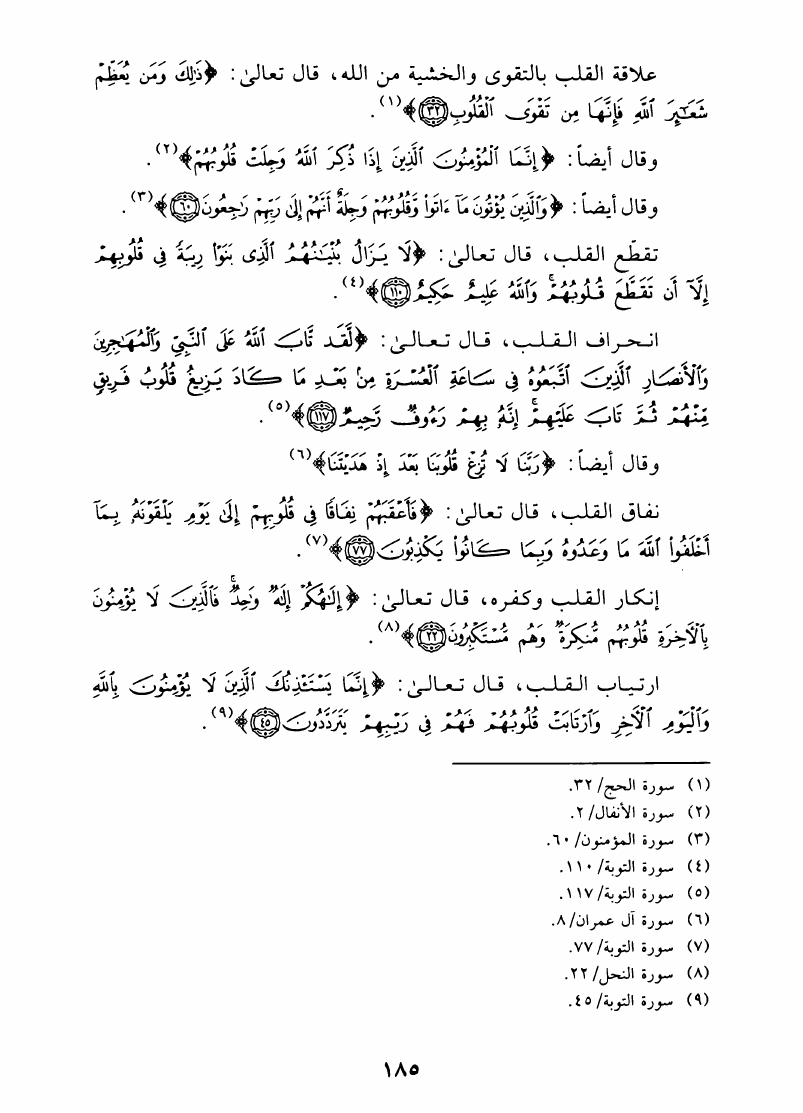 علاقة القلب بالتقوى والخشية من الله، قال تعالىٰ: ﴿ذَٰلِكَ وَمَن يُعَظِّمْ
شَعَـٰٓئِرَ ٱللَّهِ فَإِنَّهَا مِن تَقْوَى ٱلْقُلُوبِ ٣٢﴾(١).
وقال أيضاً: ﴿إِنَّمَا ٱلْمُؤْمِنُونَ ٱلَّذِينَ إِذَا ذُكِرَ ٱللَّهُ وَجِلَتْ قُلُوبُهُمْ﴾(٢).
وقال أيضاً: ﴿وَٱلَّذِينَ يُؤْتُونَ مَآ ءَاتَوا۟ وَّقُلُوبُهُمْ وَجِلَةٌ أَنَّهُمْ إِلَىٰ رَبِّهِمْ رَٰجِعُونَ ٦٠﴾(٣).
تقطّع القلب، قال تعالىٰ: ﴿لَا يَزَالُ بُنْيَـٰنُهُمُ ٱلَّذِى بَنَوْا۟ رِيبَةً فِى قُلُوبِهِمْ
إِلَّآ أَن تَقَطَّعَ قُلُوبُهُمْ ۗ وَٱللَّهُ عَلِيمٌ حَكِيمٌ ١١٠﴾(٤).
انحراف القلب، قال تعالىٰ: ﴿لَّقَد تَّابَ ٱللَّهُ عَلَى ٱلنَّبِىِّ وَٱلْمُهَـٰجِرِينَ
وَٱلْأَنصَارِ ٱلَّذِينَ ٱتَّبَعُوهُ فِى سَاعَةِ ٱلْعُسْرَةِ مِنۢ بَعْدِ مَا كَادَ يَزِيغُ قُلُوبُ فَرِيقٍ
مِّنْهُمْ ثُمَّ تَابَ عَلَيْهِمْ ۚ إِنَّهُۥ بِهِمْ رَءُوفٌ رَّحِيمٌ ١١٧﴾(٥).
وقال أيضاً: ﴿رَبَّنَا لَا تُزِغْ قُلُوبَنَا بَعْدَ إِذْ هَدَيْتَنَا﴾(٦)
نفاق القلب، قال تعالىٰ: ﴿فَأَعْقَبَهُمْ نِفَاقًا فِى قُلُوبِهِمْ إِلَىٰ يَوْمِ يَلْقَوْنَهُۥ بِمَآ
أَخْلَفُوا۟ ٱللَّهَ مَا وَعَدُوهُ وَبِمَا كَانُوا۟ يَكْذِبُونَ ٧٧﴾(٧).
إنكار القلب وكفره، قال تعالىٰ: ﴿إِلَـٰهُكُمْ إِلَـٰهٌ وَٰحِدٌ ۚ فَٱلَّذِينَ لَا يُؤْمِنُونَ
بِٱلْـَٔاخِرَةِ قُلُوبُهُم مُّنكِرَةٌ وَهُم مُّسْتَكْبِرُونَ ٢٢﴾(٨).
ارتياب القلب، قال تعالىٰ: ﴿إِنَّمَا يَسْتَـْٔذِنُكَ ٱلَّذِينَ لَا يُؤْمِنُونَ بِٱللَّهِ
وَٱلْيَوْمِ ٱلْـَٔاخِرِ وَٱرْتَابَتْ قُلُوبُهُمْ فَهُمْ فِى رَيْبِهِمْ يَتَرَدَّدُونَ ٤٥﴾(٩).
(١) سورة الحج/ ٣٢.
(٢) سورة الأنفال/ ٢.
(٣) سورة المؤمنون/ ٦٠.
(٤) سورة التوبة/ ١١٠.
(٥) سورة التوبة/ ١١٧.
(٦) سورة آل عمران/ ٨.
(٧) سورة التوبة/ ٧٧.
(٨) سورة النحل/ ٢٢.
(٩) سورة التوبة/ ٤٥.
١٨٥